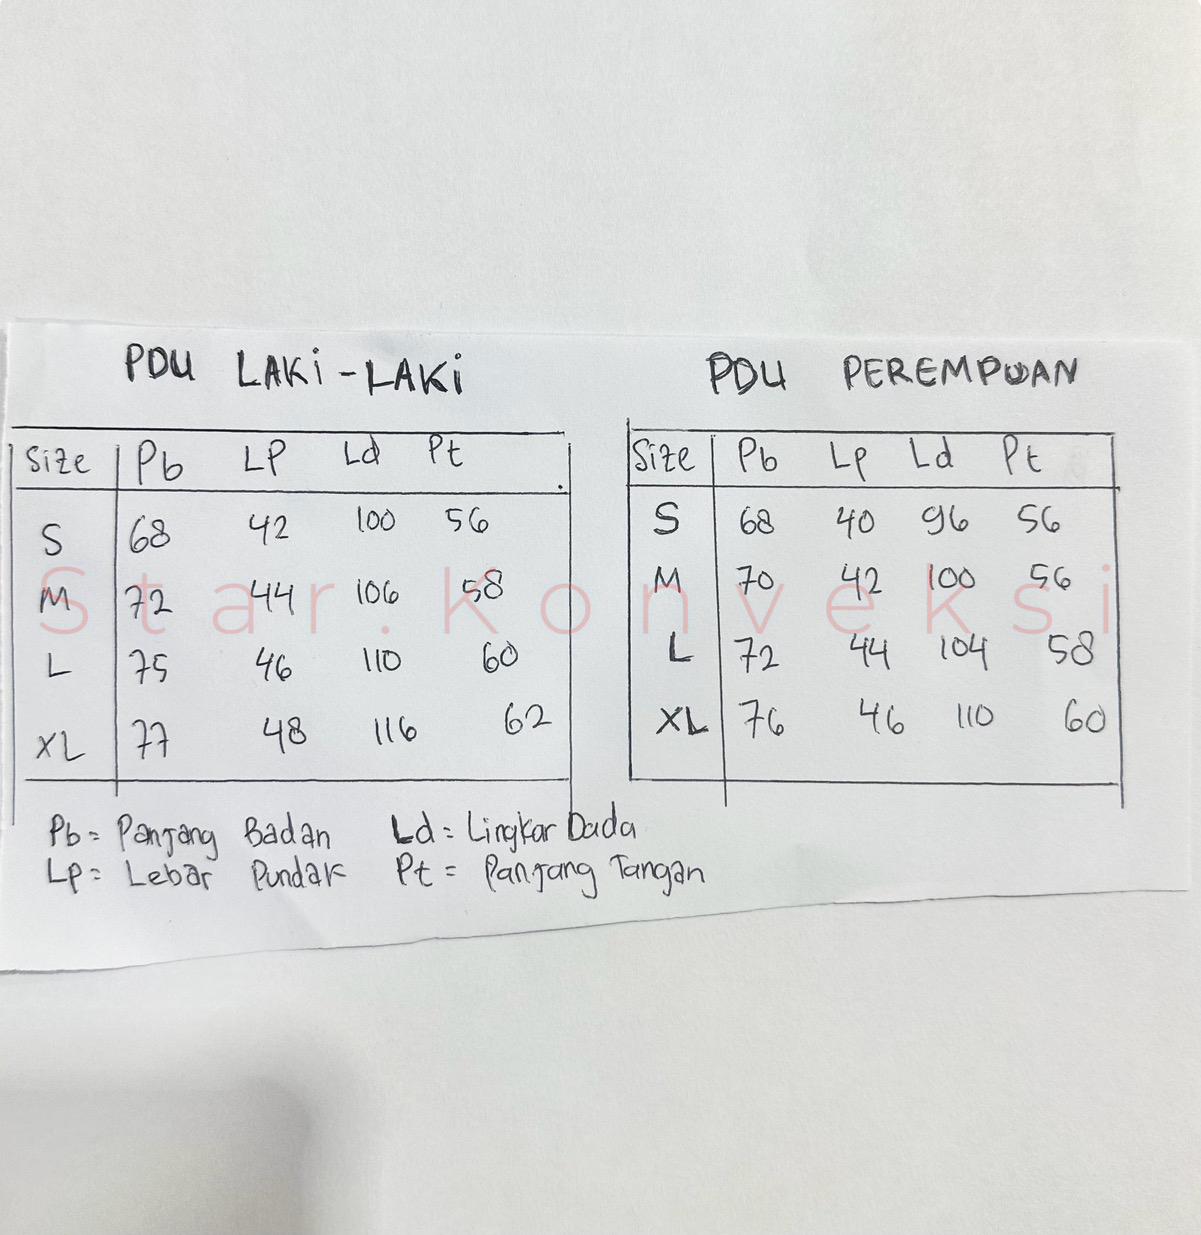 PDU LAKi-LAKi
Size Pb LP Ld Pt
S 68 42 100 56
M 72 44 106 58
L 75 46 110 60
XL 77 48 116 62
PDU PEREMPUAN
Size Pb Lp Ld Pt
S 68 40 96 56
M 70 42 100 56
L 72 44 104 58
XL 76 46 110 60
Star.Konveksi
Pb = Panjang Badan Ld = Lingkar Dada
Lp = Lebar Pundak Pt = Panjang Tangan